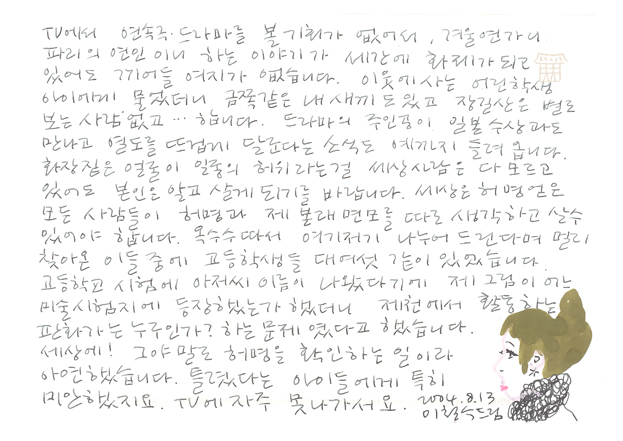 TV에서 연속극·드라마를 볼 기회가 없어서, 겨울연가니
파리의 연인이니 하는 이야기가 세간에 화제가 되고
있어도 끼어들 여지가 없습니다. 이웃에 사는 어린학생
아이에게 물었더니 금쪽같은 내새끼도 있고 장길산은 별로
보는 사람 없고… 합니다. 드라마의 주인공이 일본 수상과도
만나고 열도를 뜨겁게 달군다는 소식도 예까지 들려 옵니다.
화장짙은 얼굴이 일종의 허위라는걸 세상사람은 다 모르고
있어도 본인은 알고 살게 되기를 바랍니다. 세상은 허명 얻은
모든 사람들이 허명과 제 본래면모를 따로 생각하고 살 수
있어야 합니다. 옥수수 따서 여기저기 나누어 드린다며 멀리
찾아온 이들 중에 고등학생들 대여섯 같이 있었습니다.
고등학교 시험에 아저씨 이름이 나왔다기에 제 그림이 어간
미술시험지에 등장했는가 했더니 제천에서 활동하는
판화가는 누구인가? 하는 문제였다고 했습니다.
세상에! 그야말로 허명을 확인하는 일이라
아연했습니다. 틀렸다는 아이들에게 특히
미안했지요. TV에 자주 못나가서요. 2004.8.13
이철수드림